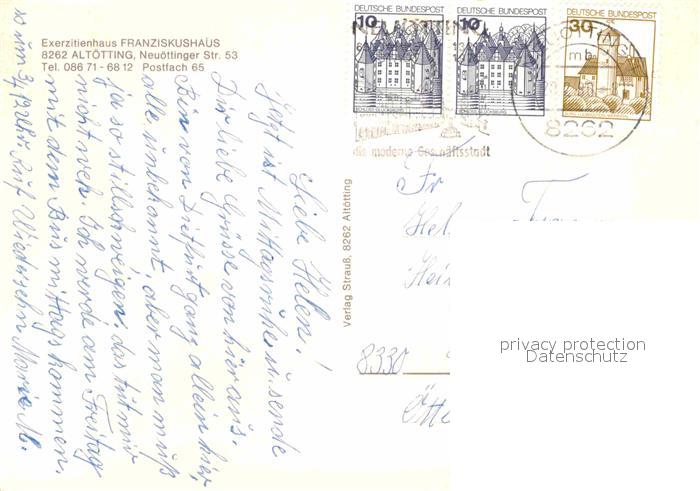 Exerzitienhaus FRANZISKUSHAUS
8262 ALTÖTTING, Neuöttinger Str. 53
Tel. 086 71 - 68 12 Postfach 65
DEUTSCHE BUNDESPOST
10
DEUTSCHE BUNDESPOST
10
DEUTSCHE BUNDESPOST
30
mb
8262
die moderne Geschäftsstadt
Liebe Helen!
Jetzt ist Mittagsruhe u. sende
Dir liebe Grüsse von hier aus.
Bin von Dietfurt ganz allein hier,
alle unbekannt, aber man muß
ja so stillschweigen. das tut mir
nicht weh. Ich werde am Freitag
mit dem Bus mittags kommen.
Auf Wiedersehn Maria M.
Verlag Strauß, 8262 Altötting
Fr
8330
privacy protection
Datenschutz